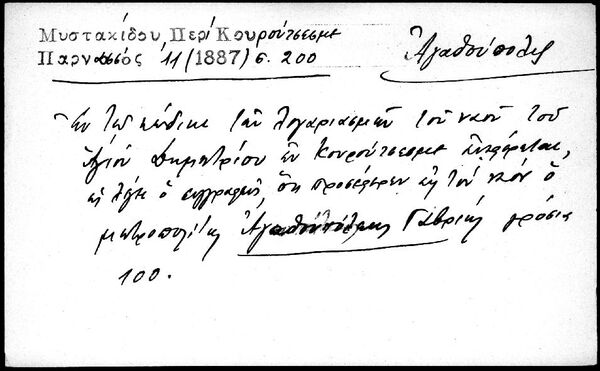 Μυστακίδου Περί Κουρούτσεσμε
Παρνασσός 11 (1887) σ. 200
Ἀγαθούπολις
Ἐν τῷ κώδικι τῶν λογαριασμῶν τοῦ ναοῦ τοῦ
Ἁγίου Δημητρίου ἐν Κουρούτσεσμε ἀναφέρεται,
ὡς λέγει ὁ συγγραφεύς, ὅτι προσέφερεν εἰς τὸν ναόν ὁ
μητροπολίτης Ἀγαθουπόλεως Γαβριήλ γρόσια
100.